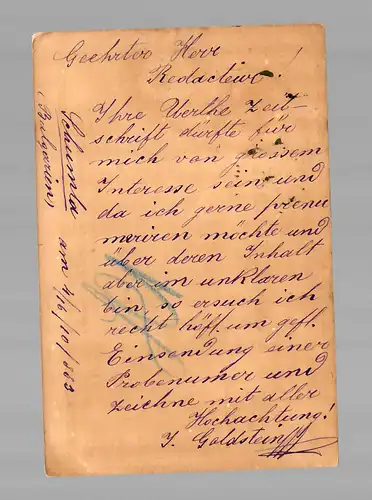 Geehrter Herr
Redacteur!
Ihre Werthe Zeit-
schrift dürfte für
mich von grossem
Interesse sein, und
da ich gerne prenu
meriren möchte und
über deren Inhalt
aber im unklaren
bin, so ersuch ich
recht höff. um gefl.
Einsendung einer
Probenumer und
zeichne mit aller
Hochachtung!
J. Goldstein
Schumla am 4/16/10/883
(Bulgarien)